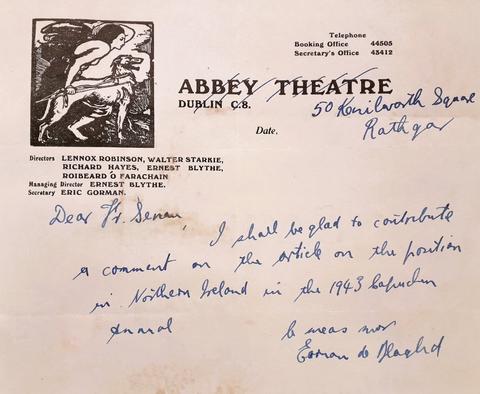 Telephone
Booking Office 44505
Secretary's Office 43412
ABBEY THEATRE
DUBLIN C.8.
50 Kenilworth Square
Rathgar
Date.
Directors LENNOX ROBINSON, WALTER STARKIE,
RICHARD HAYES, ERNEST BLYTHE,
ROIBEARD Ó FARACHAIN
Managing Director ERNEST BLYTHE.
Secretary ERIC GORMAN.
Dear Fr. Senan,
I shall be glad to contribute
a comment on the article on the position
in Northern Ireland in the 1943 Capuchin
Annual
le meas mor
Earnan de Blaghd